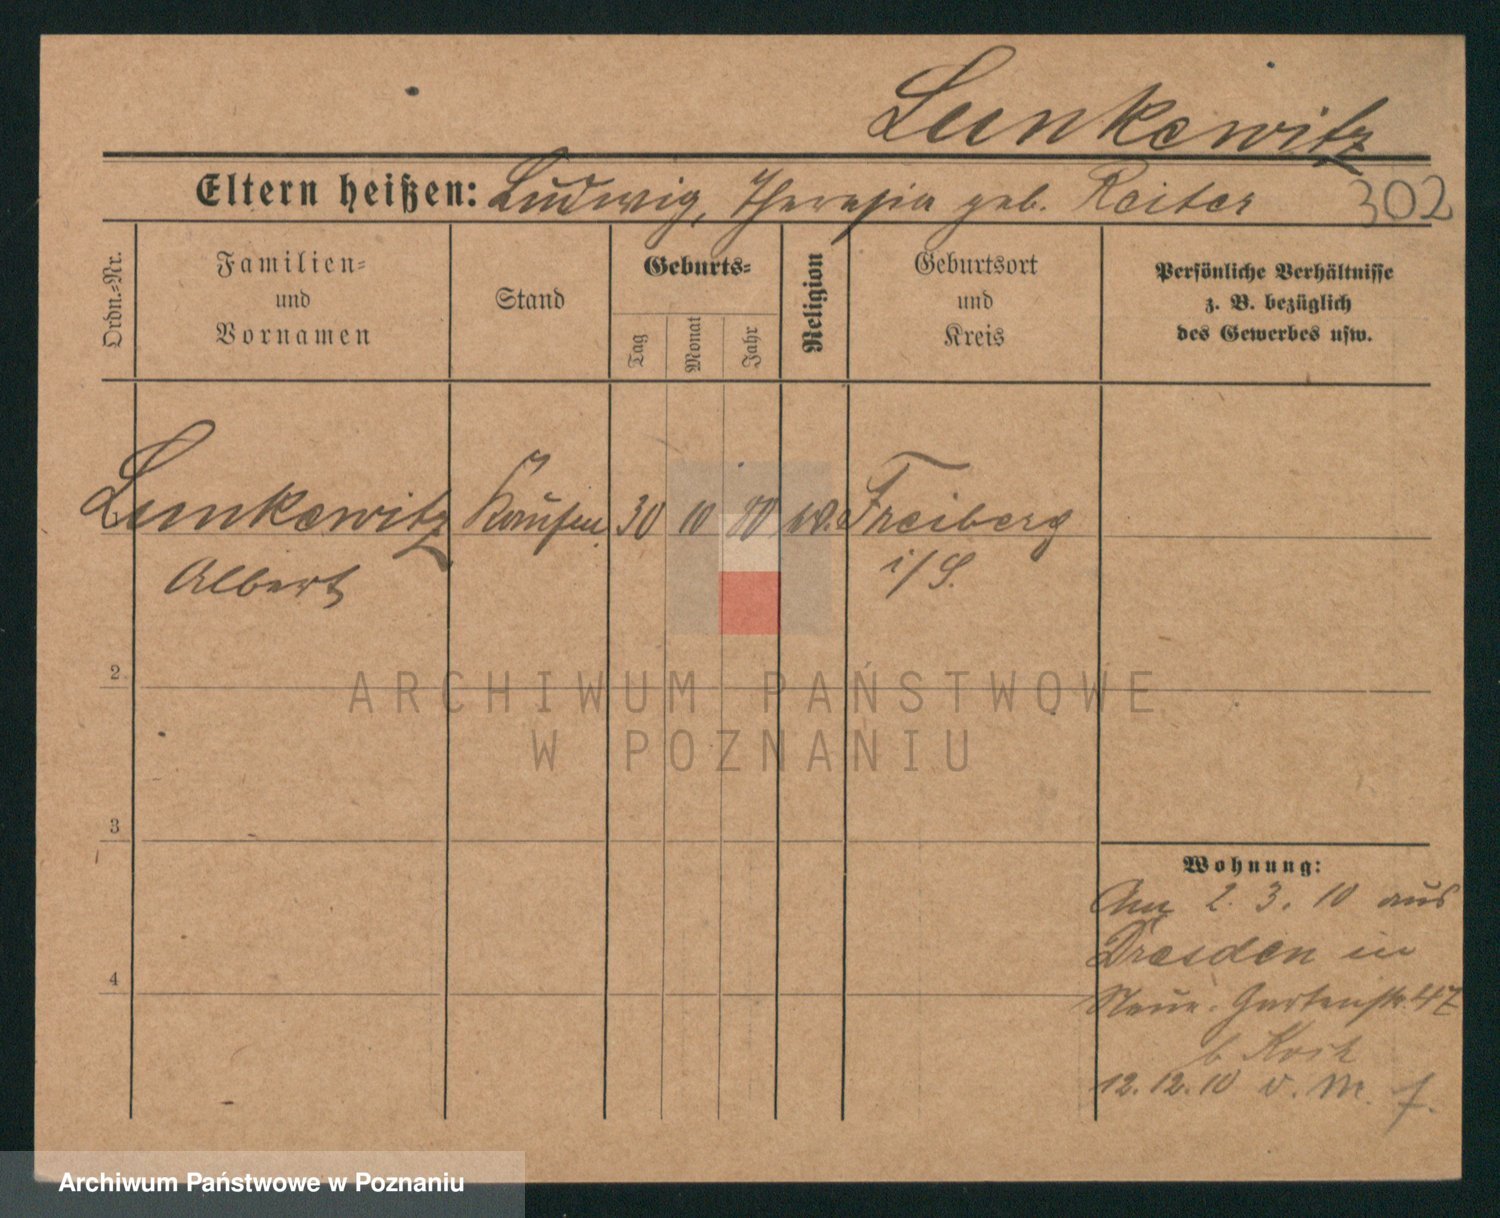 Lunkewitz
Eltern heißen: Ludwig, Theresia geb. Reiter 302
Ordn.-Nr.
Familien-
und
Vornamen
Stand
Geburts-
Tag
Monat
Jahr
Religion
Geburtsort
und
Kreis
Persönliche Verhältnisse
z. B. bezüglich
des Gewerbes usw.
Lunkewitz Kaufm. 30 10 80 Freiberg
Albert i/S.
2
3
4
Wohnung:
Am 2. 3. 10 aus
Dresden in
Neue-Gartenstr. 47
b
12.12.10 v. M. f.
ARCHIWUM PAŃSTWOWE
W POZNANIU
Archiwum Państwowe w Poznaniu